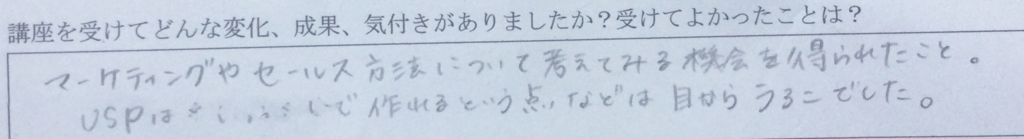 講座を受けてどんな変化、成果、気付きがありましたか？受けてよかったことは？
マーケティングやセールス方法について考えてみる機会を得られたこと。
USPは で作れるという点などは目からうろこでした。